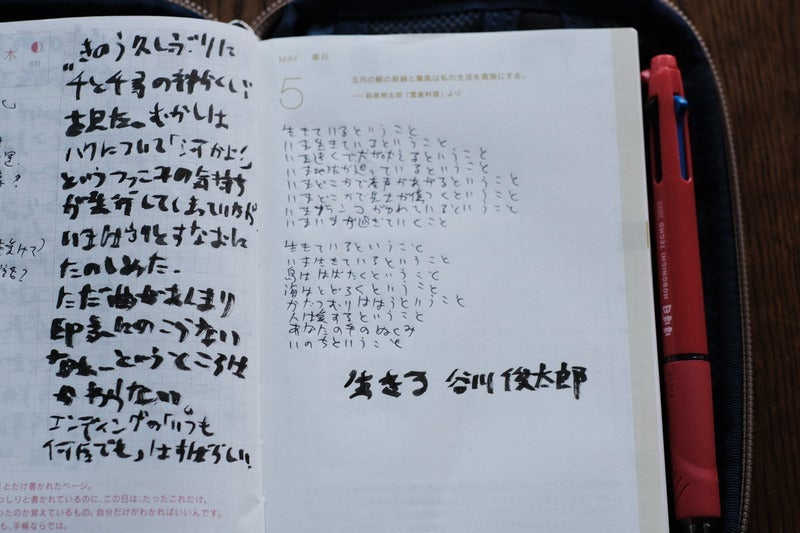 木
121
きのう久しぶりに
"千と千尋の神かくし"
を見た。むかしは
ハクについて「河かよ!」
というツッコミの気持ち
が先行してしまっていたが、
いまは割とすなおに
たのしめた。
ただ曲があんまり
印象にのこらない
なぁ…というところは
かわらない。
エンディングの「いつも
何度でも」はすばらしい!
りとだけ書かれたページ。
っしりと書かれているのに、この日は、たったこれだけ。
ったのか覚えているもの。自分だけがわかればいいんです。
も、手帳ならでは。
MAY 皐月
5
五月の朝の新緑と薫風は私の生活を貴族にする。
── 萩原朔太郎「雲雀料理」より
生きているということ
いま生きているということ
いま遠くで犬がほえるということ
いま地球が廻っているということ
いまどこかで産声があがるということ
いまどこかで兵士が傷つくということ
いまブランコがゆれているということ
いまいまが過ぎていくこと
生きているということ
いま生きているということ
鳥ははばたくということ
海はとどろくということ
かたつむりははうということ
人は愛するということ
あなたの手のぬくみ
いのちということ
生きる 谷川俊太郎
HOBONICHI TECHO 2020